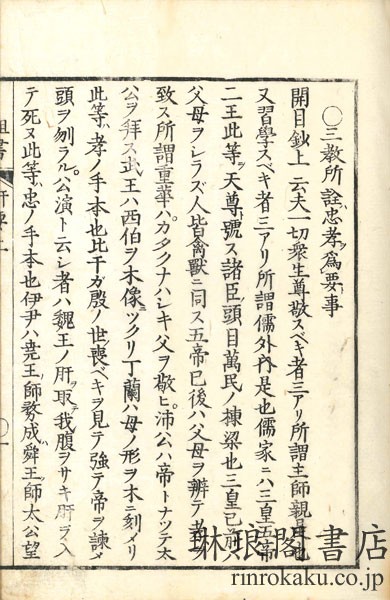 ○三教所詮忠孝爲要事
開目鈔上云夫一切衆生尊敬スベキ者三アリ所謂主師親是也
又習學スベキ者三アリ所謂儒外内是也儒家ニハ三皇五帝
三王此等ヲ天尊ト號ス諸臣ノ頭目萬民ノ棟梁也三皇已前ハ
父母ヲシラズ人皆禽獸ニ同ス五帝已後ハ父母ヲ辨テ孝ヲ
致ス所謂重華ハカタクナハシキ父ヲ敬ヒ沛公ハ帝トナツテ太
公ヲ拜ス武王ハ西伯ヲ木像ニツクリ丁蘭ハ母ノ形ヲ木ニ刻メリ
此等ハ孝ノ手本也比干ガ殷ノ世ノ喪ベキヲ見テ強テ帝ヲ諫メ
頭ヲ刎ラル公演ト云シ者ハ魏王ノ肝ヲ取テ我腹ヲサキ肝ヲ入
テ死ヌ此等ハ忠ノ手本也伊尹ハ堯王ノ師務成ハ舜王ノ師太公望
琳琅閣書店
rinrokaku.co.jp